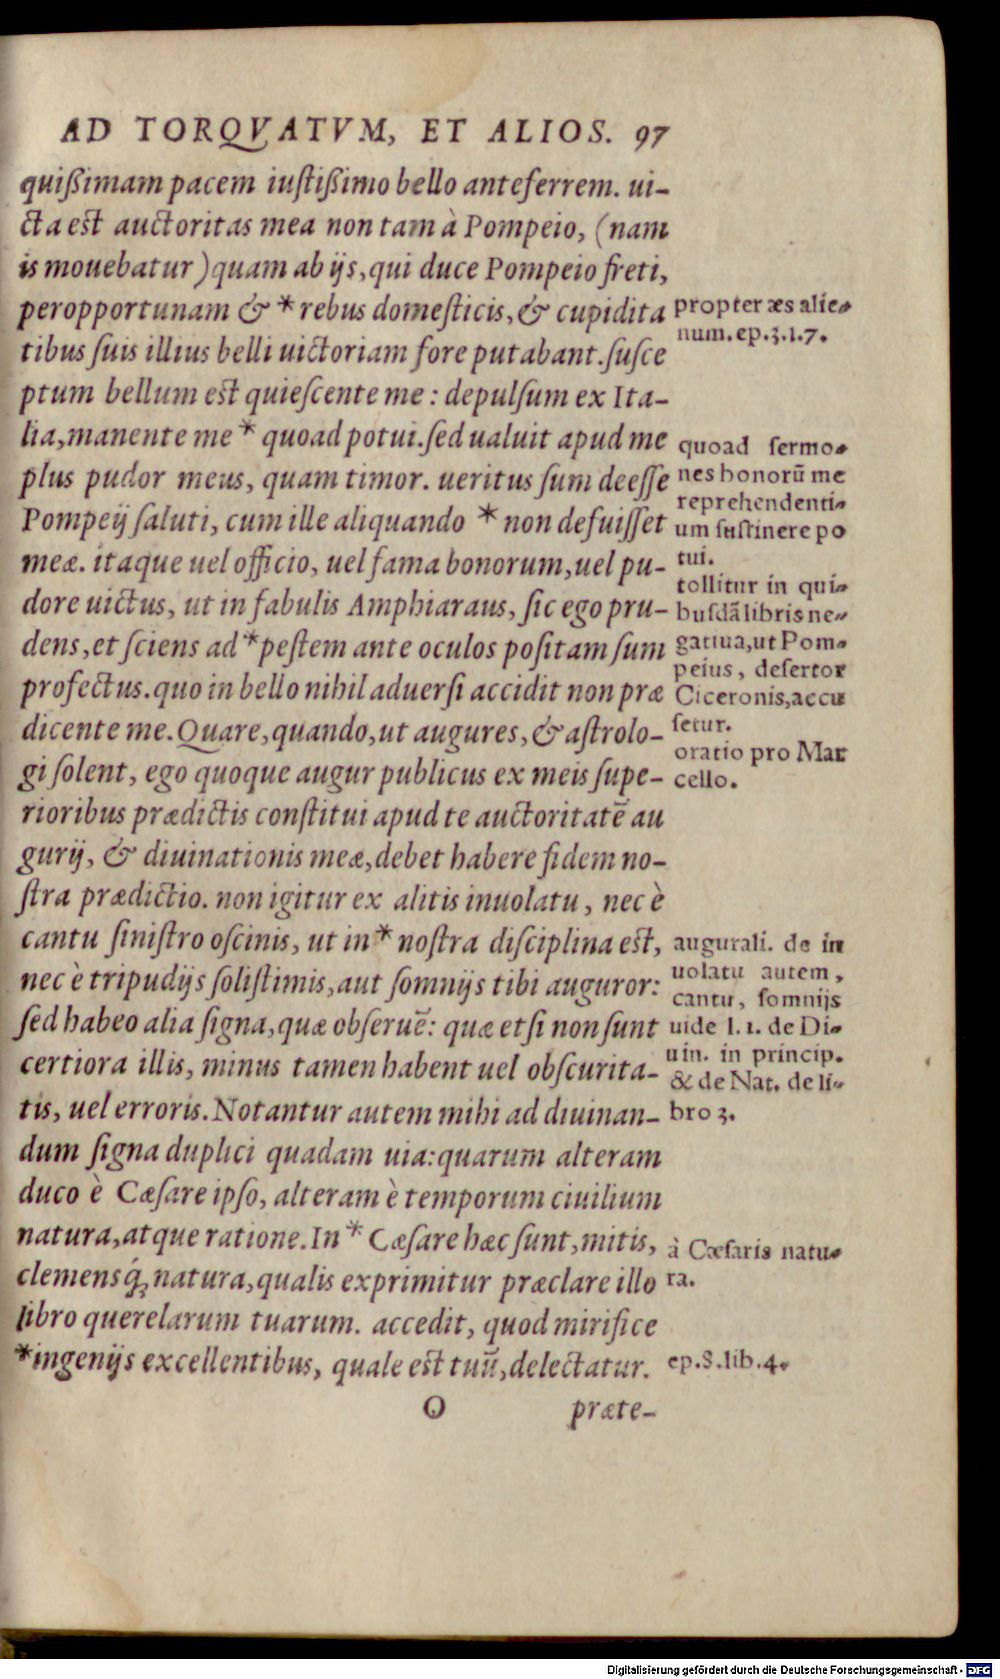 AD TORQVATVM, ET ALIOS. 97
quißimam pacem iustißimo bello anteferrem. ui-
cta est auctoritas mea non tam à Pompeio, (nam
is mouebatur) quam ab ijs, qui duce Pompeio freti,
peropportunam & * rebus domesticis, & cupidita
tibus suis illius belli uictoriam fore putabant. susce
ptum bellum est quiescente me: depulsum ex Ita-
lia, manente me * quoad potui. sed ualuit apud me
plus pudor meus, quam timor. ueritus sum deesse
Pompeij saluti, cum ille aliquando * non defuisset
meæ. itaque uel officio, uel fama bonorum, uel pu-
dore uictus, ut in fabulis Amphiaraus, sic ego pru-
dens, et sciens ad * pestem ante oculos positam sum
profectus. quo in bello nihil aduersi accidit non præ
dicente me. Quare, quando, ut augures, & astrolo-
gi solent, ego quoque augur publicus ex meis supe-
rioribus prædictis constitui apud te auctoritatē au
gurij, & diuinationis meæ, debet habere fidem no-
stra prædictio. non igitur ex alitis inuolatu, nec è
cantu sinistro oscinis, ut in * nostra disciplina est,
nec è tripudijs solistimis, aut somnijs tibi auguror:
sed habeo alia signa, quæ obseruē: quæ etsi non sunt
certiora illis, minus tamen habent uel obscurita-
tis, uel erroris. Notantur autem mihi ad diuinan-
dum signa duplici quadam uia: quarum alteram
duco è Cæsare ipso, alteram è temporum ciuilium
natura, atque ratione. In * Cæsare hæc sunt, mitis,
clemensq́; natura, qualis exprimitur præclare illo
libro querelarum tuarum. accedit, quòd mirifice
*ingenijs excellentibus, quale est tuū, delectatur.
O præte-
propter æs alie-
num. ep. 3. l. 7.
quoad sermo-
nes bonorū me
reprehendenti-
um sustinere po
tui.
tollitur in qui-
busdā libris ne-
gatiua, ut Pom-
peius, desertor
Ciceronis, accu
setur.
oratio pro Mar
cello.
augurali. de in
uolatu autem,
cantu, somnijs
uide l. 1. de Di-
uin. in princip.
& de Nat. de li-
bro 3.
à Cæsaris natu-
ra.
ep. 8. lib. 4.
Digitalisierung gefördert durch die Deutsche Forschungsgemeinschaft - DFG